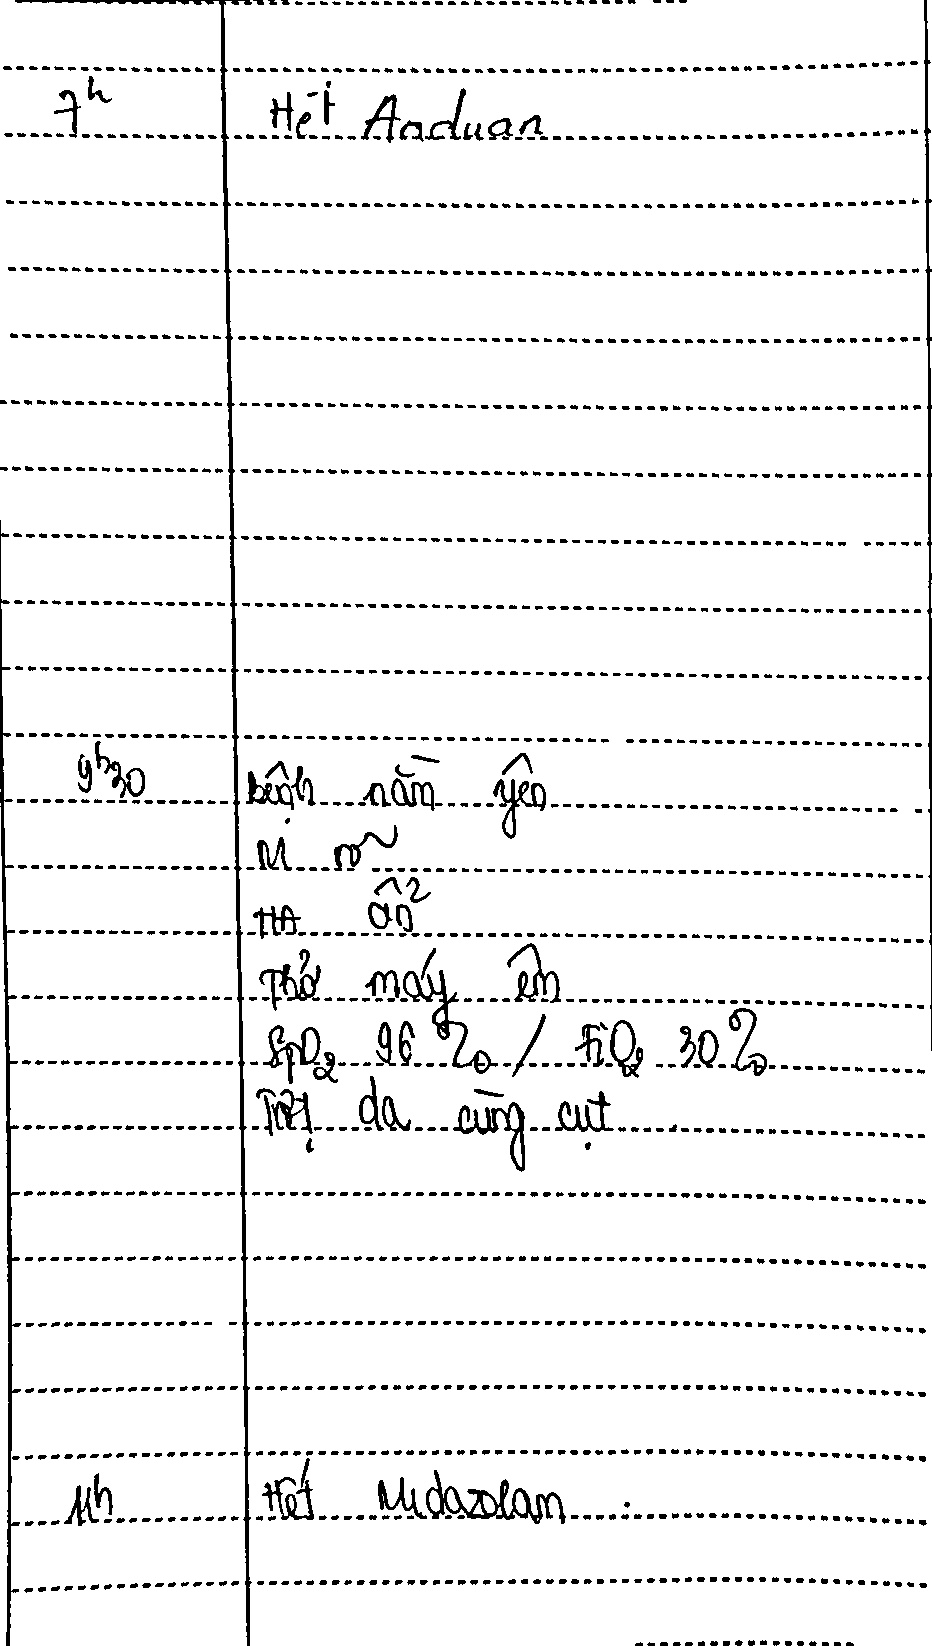 7h Hết Anduan
9h30 bệnh nằm yên
M rõ
HA ổn
Thở máy êm
SpO2 96% / FiO2 30%
Trợt da cùng cụt
11h Hết Midazolam.